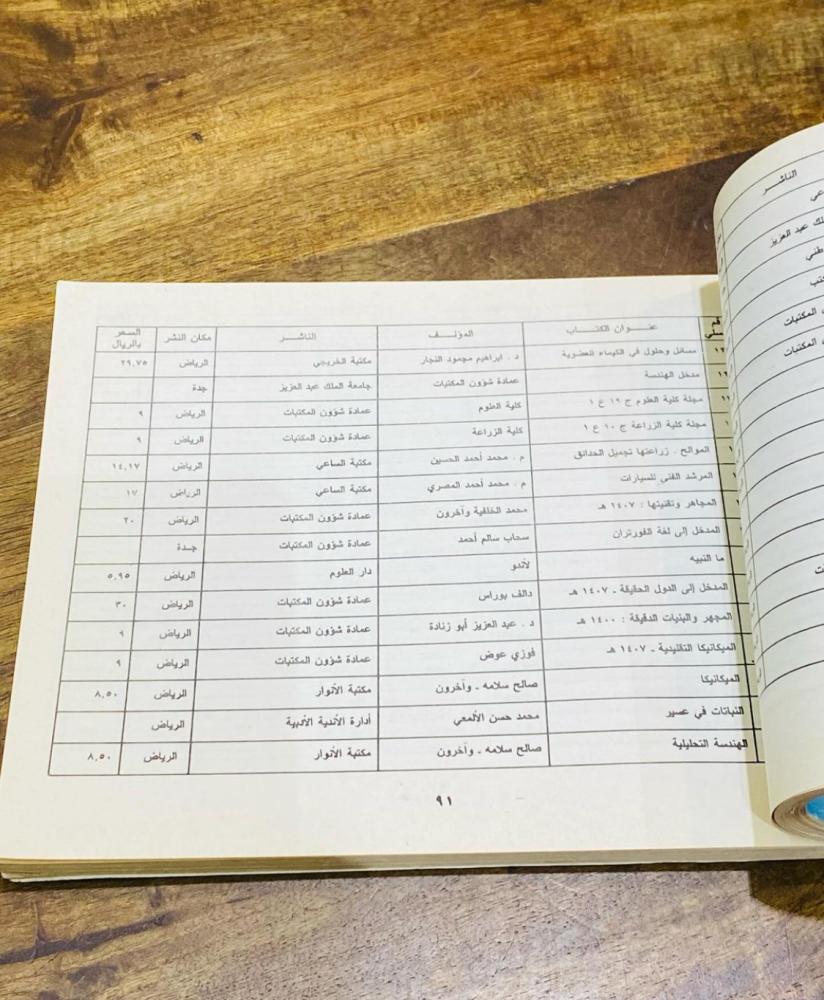 رقم سلي عنوان الكتاب المؤلف الناشر مكان النشر السعر بالريال
مسائل وحلول في الكيمياء العضوية د . ابراهيم محمود النجار مكتبة الخريجي الرياض ٢٩,٧٥
مدخل الهندسة عمادة شؤون المكتبات جامعة الملك عبد العزيز جدة
مجلة كلية العلوم ج ١٩ ع ١ كلية العلوم عمادة شؤون المكتبات الرياض ٩
مجلة كلية الزراعة ج ١٠ ع ١ كلية الزراعة عمادة شؤون المكتبات الرياض ٩
الموالح . زراعتها تجميل الحدائق م . محمد أحمد الحسين مكتبة الساعي الرياض ١٤,١٧
المرشد الفني للسيارات م . محمد أحمد المصري مكتبة الساعي الرياض ١٧
المجاهر وتقنيتها : ١٤٠٧ هـ محمد الخلفية وآخرون عمادة شؤون المكتبات الرياض ٢٠
المدخل إلى لغة الفورتران سحاب سالم أحمد عمادة شؤون المكتبات جدة
ما النبيه لأندو دار العلوم الرياض ٥,٩٥
المدخل إلى الدول الحقيقة ـ ١٤٠٧ هـ دالف بوراس عمادة شؤون المكتبات الرياض ٣٠
المجهر والبنيات الدقيقة : ١٤٠٠ هـ د . عبد العزيز أبو زنادة عمادة شؤون المكتبات الرياض ٩
الميكانيكا التقليدية ـ ١٤٠٧ هـ فوزي عوض عمادة شؤون المكتبات الرياض ٩
الميكانيكا صالح سلامه ـ وآخرون مكتبة الأنوار الرياض ٨,٥٠
النباتات في عسير محمد حسن الألمعي أدارة الأندية الأدبية الرياض
الهندسة التحليلية صالح سلامه ـ وآخرون مكتبة الأنوار الرياض ٨,٥٠
٩١
الناشر
عبد العزيز
المكتبات
المكتبات